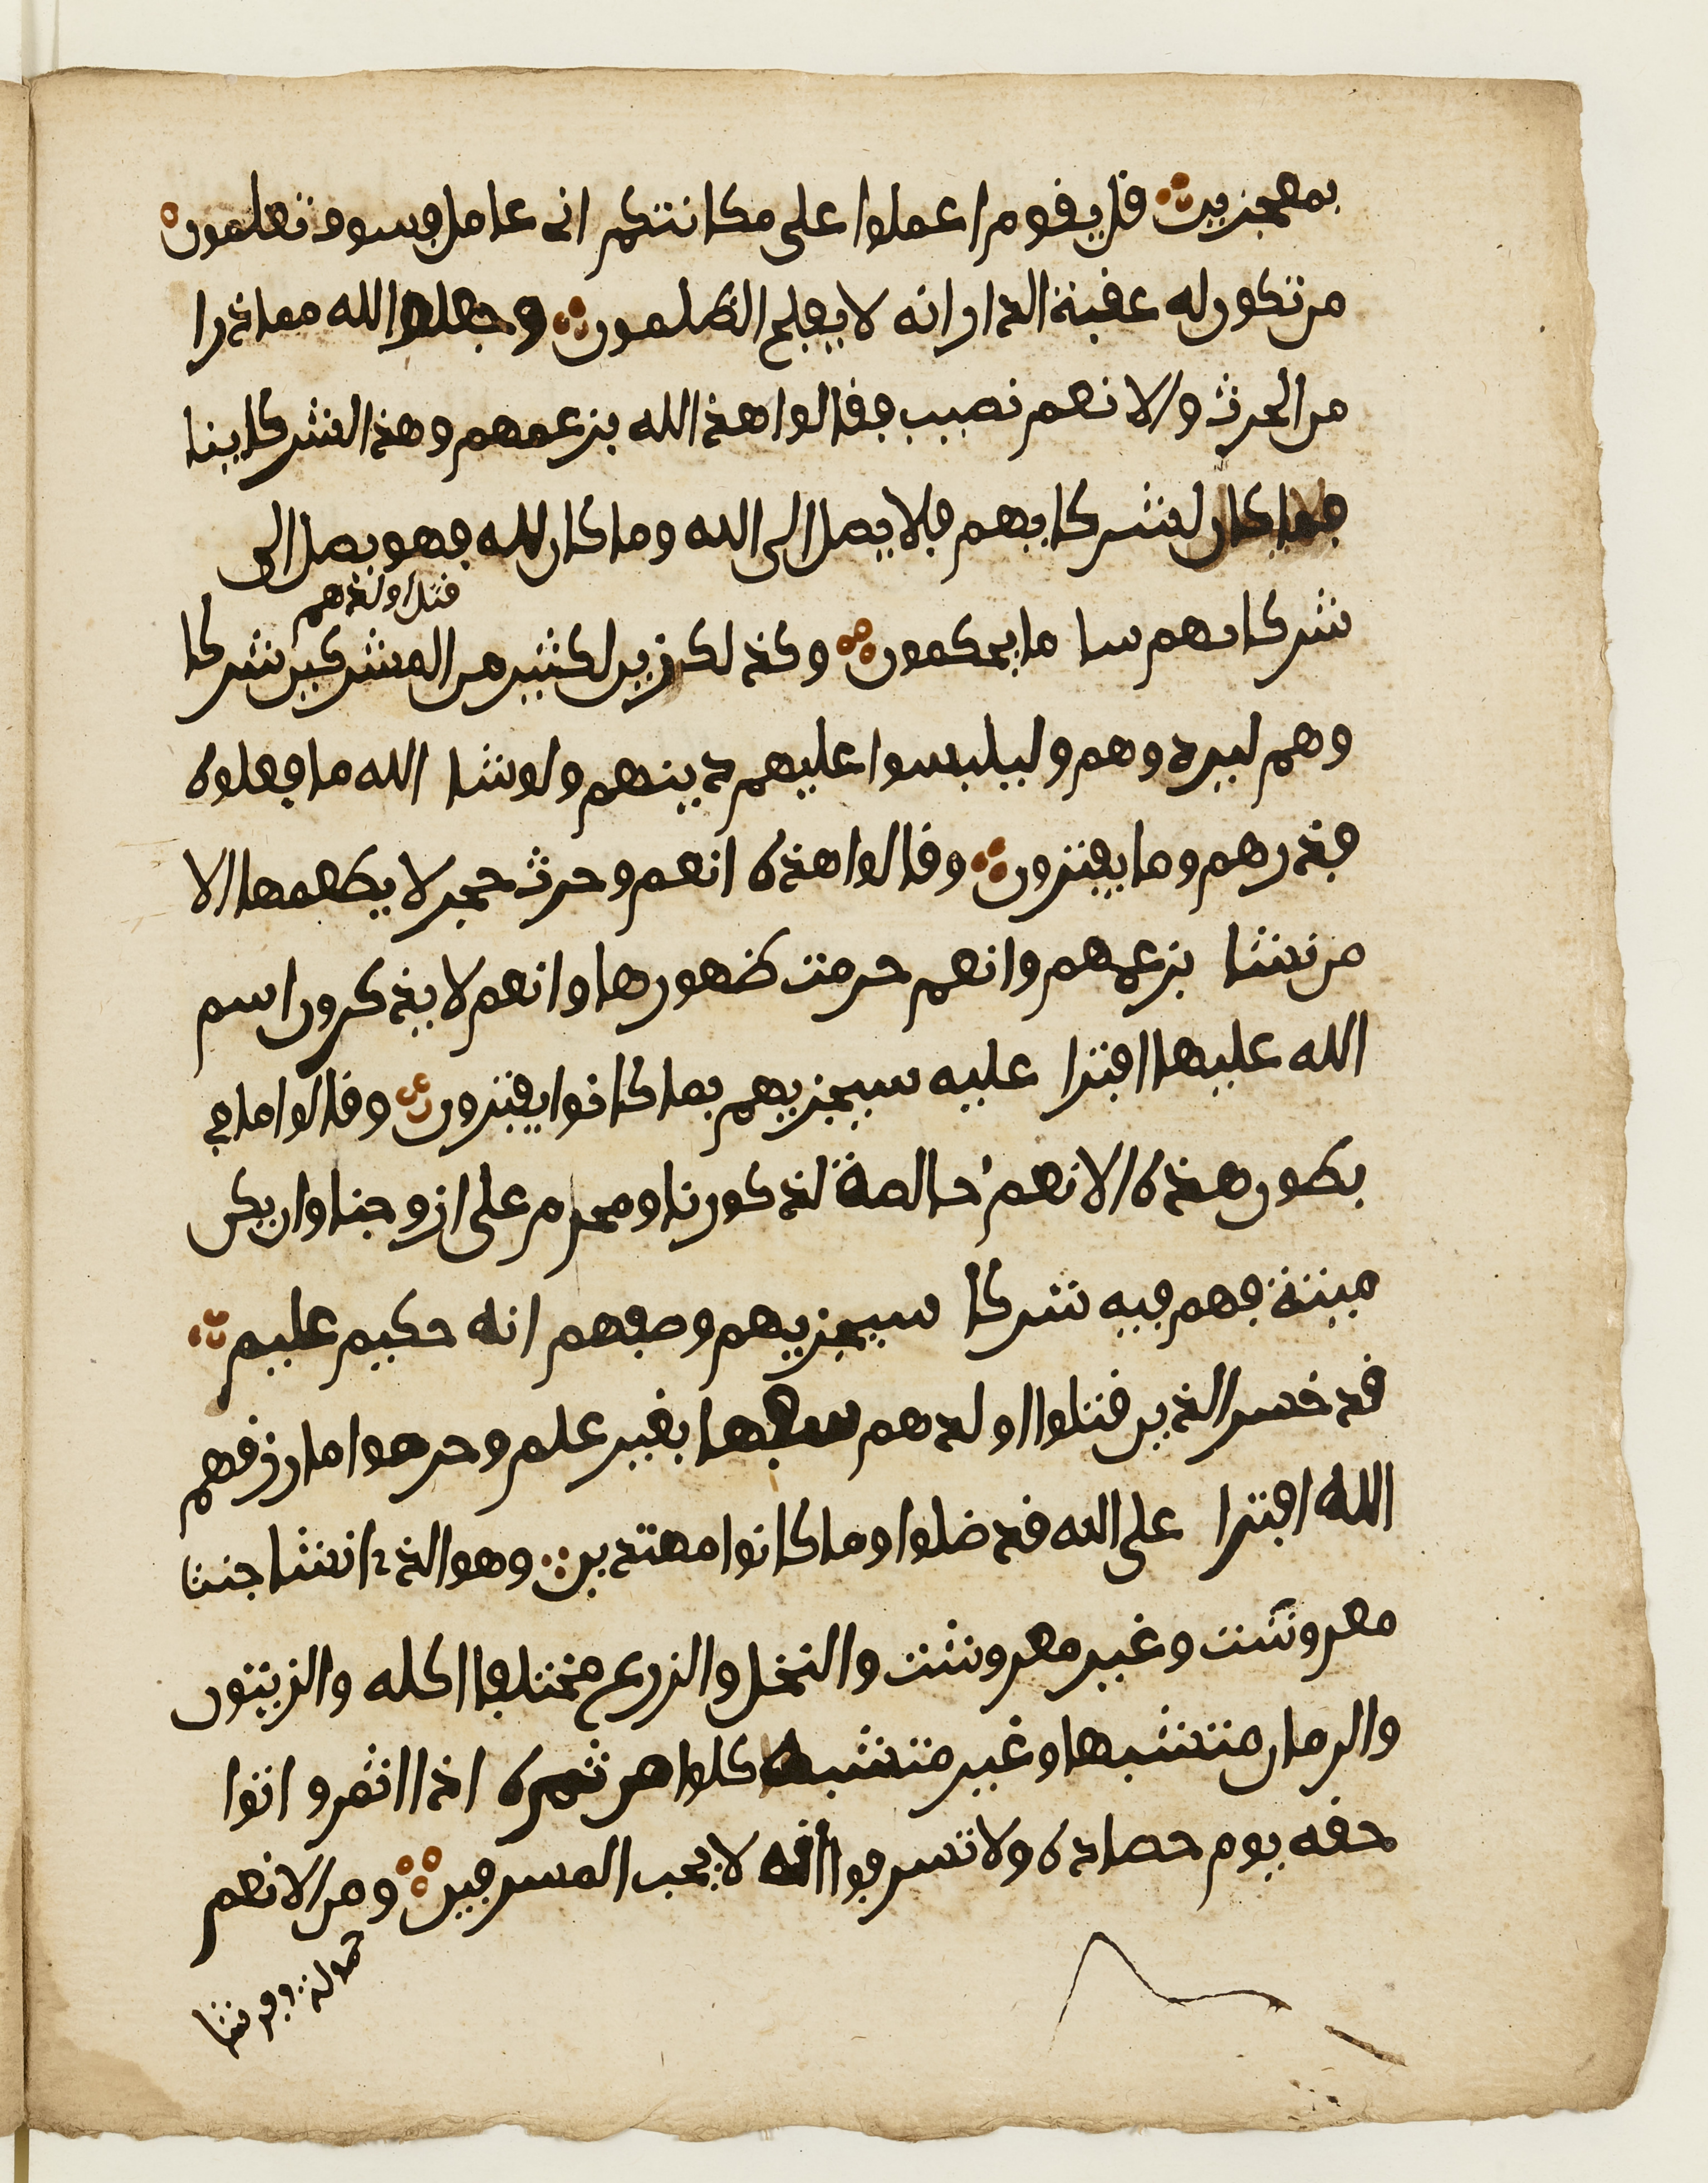 بمعجزين قل يقوم اعملوا على مكانتكم انى عامل فسوف تعلمون
من تكون له عقبة الدار انه لا يفلح الظلمون وجعلوا لله مما ذرا
من الحرث والانعم نصيب فقالوا هذا لله بزعمهم وهذا لشركاينا
فما كان لشركايهم فلا يصل الى الله وما كان لله فهو يصل الى
شركايهم سا ما يحكمون وكذلك زين لكثير من المشركين شركا
قتل اولدهم
وهم ليردوهم وليلبسوا عليهم دينهم ولو شا الله ما فعلوه
فذرهم وما يفترون وقالوا هذه انعم وحرث حجر لا يطعمها الا
من نشا بزعمهم وانعم حرمت ظهورها وانعم لا يذكرون اسم
الله عليها افترا عليه سيجزيهم بما كانوا يفترون وقالوا ما في
بطون هذه الانعم خالصة لذكورنا ومحرم على ازوجنا وان يكن
ميتة فهم فيه شركا سيجزيهم وصفهم انه حكيم عليم
قد خسر الذين قتلوا اولدهم سفها بغير علم وحرموا ما رزقهم
الله افترا على الله قد ضلوا وما كانوا مهتدين وهو الذي انشا جنت
معروشت وغير معروشت والنخل والزرع مختلفا اكله والزيتون
والرمان متشبها وغير متشبه كلوا من ثمره اذا اثمر و اتوا
حقه يوم حصاده ولا تسرفوا انه لا يحب المسرفين ومن الانعم
حمولة وفرشا